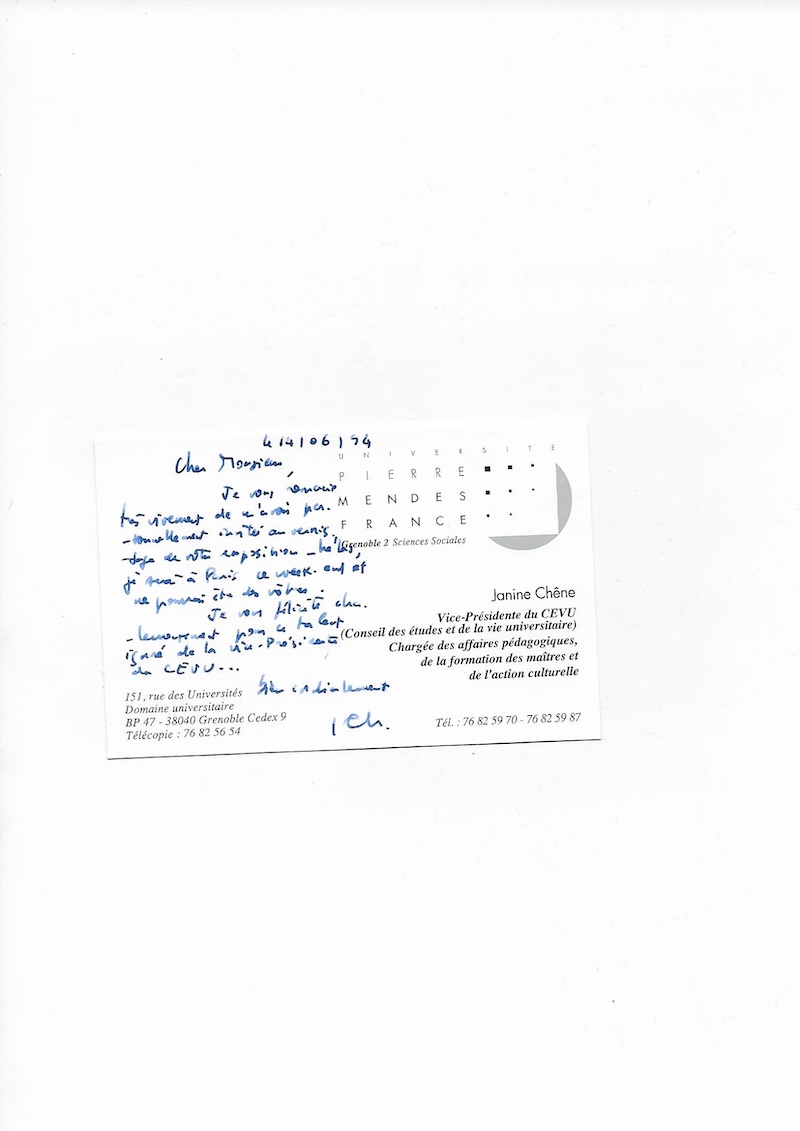 le 14/06/94
Cher Monsieur,
Je vous remercie
très vivement de m'avoir per-
-sonnellement invitée au vernis-
-sage de votre exposition - hélas,
je serai à Paris ce week-end et
ne pourrai être des vôtres.
Je vous félicite cha-
-leureusement pour ce talent
ignoré de la vice-Présidente
du CEVU...
Bien cordialement
JCh.
UNIVERSITE
PIERRE
MENDES
FRANCE
Grenoble 2 Sciences Sociales
Janine Chêne
Vice-Présidente du CEVU
(Conseil des études et de la vie universitaire)
Chargée des affaires pédagogiques,
de la formation des maîtres et
de l'action culturelle
151, rue des Universités
Domaine universitaire
BP 47 - 38040 Grenoble Cedex 9
Télécopie : 76 82 56 54
Tél. : 76 82 59 70 - 76 82 59 87